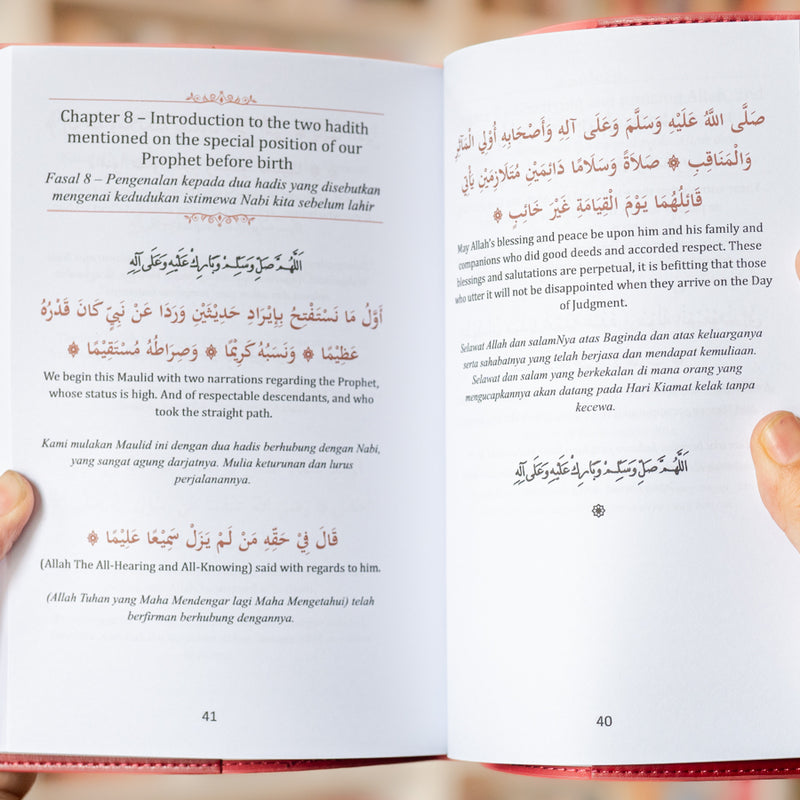 صَلَّى اللَّهُ عَلَيْهِ وَسَلَّمَ وَعَلَى آلِهِ وَأَصْحَابِهِ أُوْلِي الْمَآثِرِ
وَالْمَنَاقِبِ ۞ صَلَاةً وَسَلَامًا دَائِمَيْنِ مُتَلَازِمَيْنِ يَأْتِي
قَائِلُهُمَا يَوْمَ الْقِيَامَةِ غَيْرَ خَائِبٍ ۞
May Allah's blessing and peace be upon him and his family and
companions who did good deeds and accorded respect. These
blessings and salutations are perpetual, it is befitting that those
who utter it will not be disappointed when they arrive on the Day
of Judgment.
Selawat Allah dan salamNya atas Baginda dan atas keluarganya
serta sahabatnya yang telah berjasa dan mendapat kemuliaan.
Selawat dan salam yang berkekalan di mana orang yang
mengucapkannya akan datang pada Hari Kiamat kelak tanpa
kecewa.
اَللَّهُمَّ صَلِّ وَسَلِّمْ وَبَارِكْ عَلَيْهِ وَعَلَى آلِهِ
۞
40
Chapter 8 – Introduction to the two hadith
mentioned on the special position of our
Prophet before birth
Fasal 8 – Pengenalan kepada dua hadis yang disebutkan
mengenai kedudukan istimewa Nabi kita sebelum lahir
اَللَّهُمَّ صَلِّ وَسَلِّمْ وَبَارِكْ عَلَيْهِ وَعَلَى آلِهِ
أَوَّلُ مَا نَسْتَفْتِحُ بِإِيْرَادِ حَدِيْثَيْنِ وَرَدَا عَنْ نَبِيٍّ كَانَ قَدْرُهُ
عَظِيْمًا ۞ وَنَسَبُهُ كَرِيْمًا ۞ وَصِرَاطُهُ مُسْتَقِيْمًا ۞
We begin this Maulid with two narrations regarding the Prophet,
whose status is high. And of respectable descendants, and who
took the straight path.
Kami mulakan Maulid ini dengan dua hadis berhubung dengan Nabi,
yang sangat agung darjatnya. Mulia keturunan dan lurus
perjalanannya.
قَالَ فِيْ حَقِّهِ مَنْ لَمْ يَزَلْ سَمِيْعًا عَلِيْمًا ۞
(Allah The All-Hearing and All-Knowing) said with regards to him.
(Allah Tuhan yang Maha Mendengar lagi Maha Mengetahui) telah
berfirman berhubung dengannya.
41